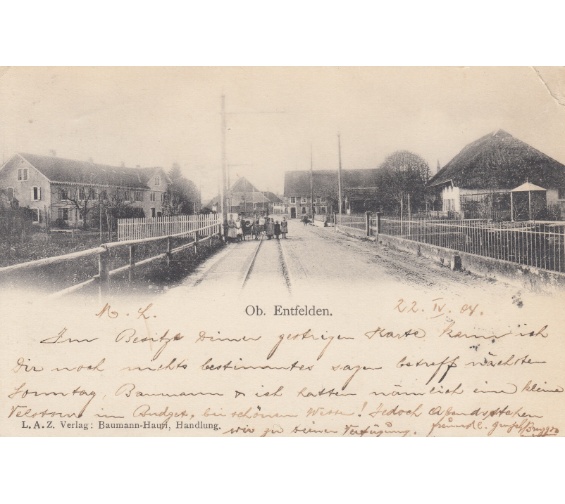 Ob. Entfelden.
M. L. 22. IV. 04.
Im Besitze Deiner gestrigen Karte kann ich
Dir noch nichts bestimmtes sagen betreff nächsten
Sonntag. Baumann & ich hatten nämlich eine kleine
Velotour im Budget, bei schönem Wetter! Jedoch Abends stehen
L. A. Z. Verlag: Baumann-Haupt, Handlung.
wir zu Deiner Verfügung.